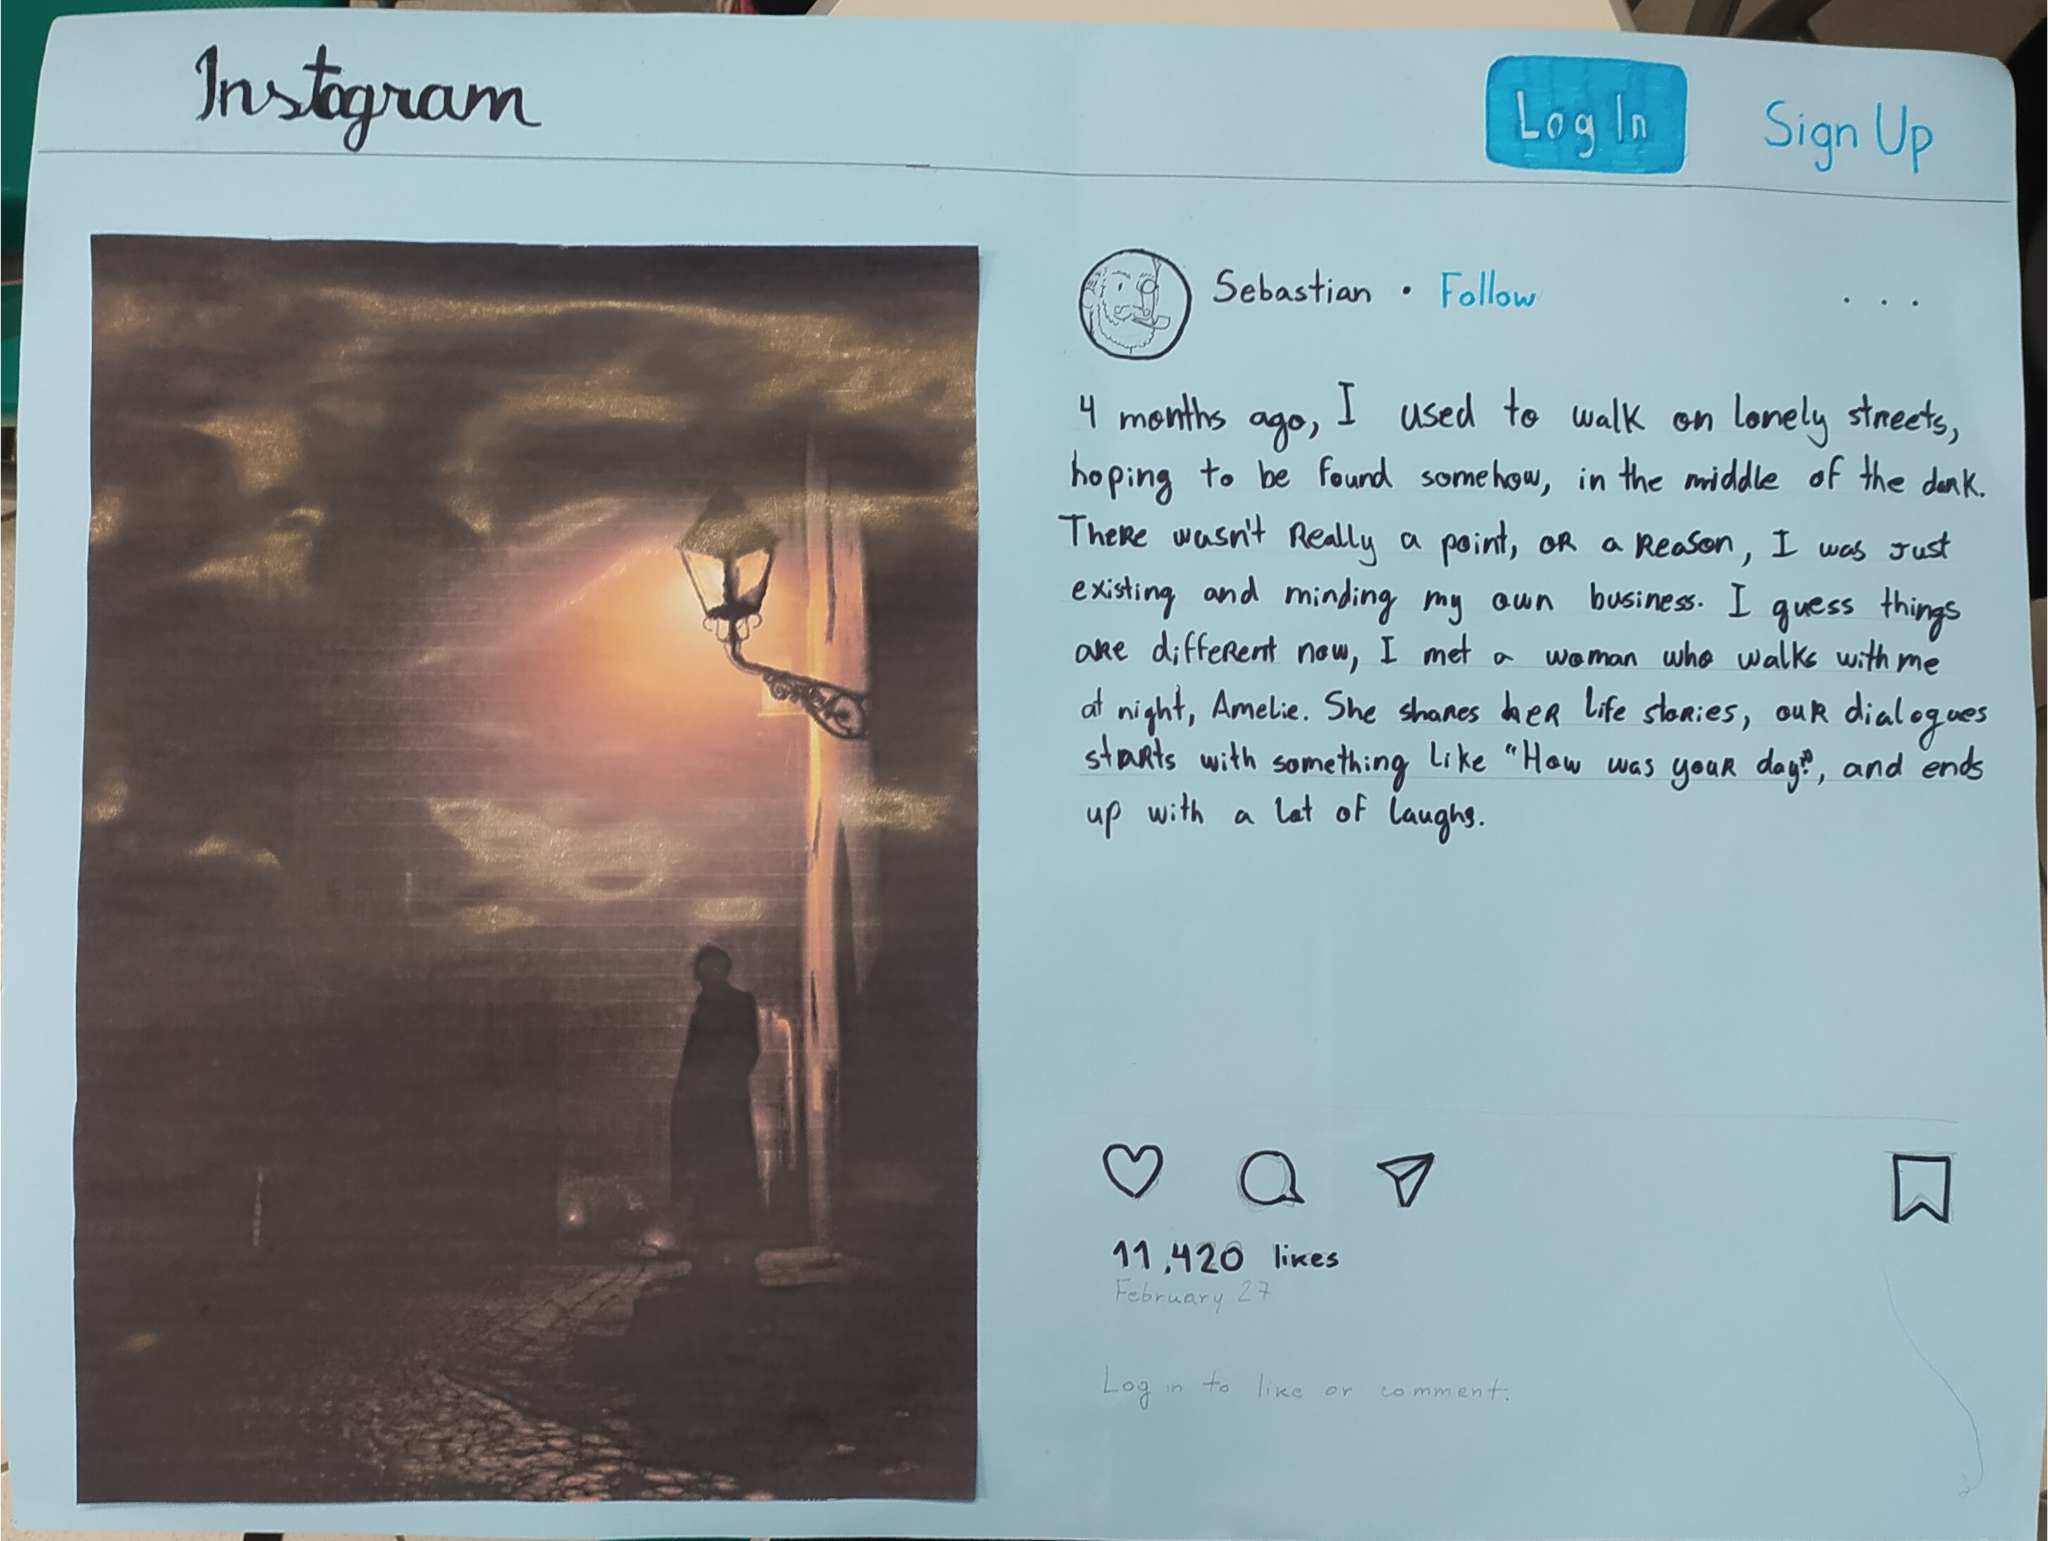 Instagram
Log In
Sign Up
Sebastian • Follow
...
4 months ago, I used to walk on lonely streets,
hoping to be found somehow, in the middle of the dark.
There wasn't really a point, or a reason, I was just
existing and minding my own business. I guess things
are different now, I met a woman who walks with me
at night, Amelie. She shares her life stories, our dialogues
starts with something like "How was your day?", and ends
up with a lot of laughs.
11,420 likes
February 27
Log in to like or comment.